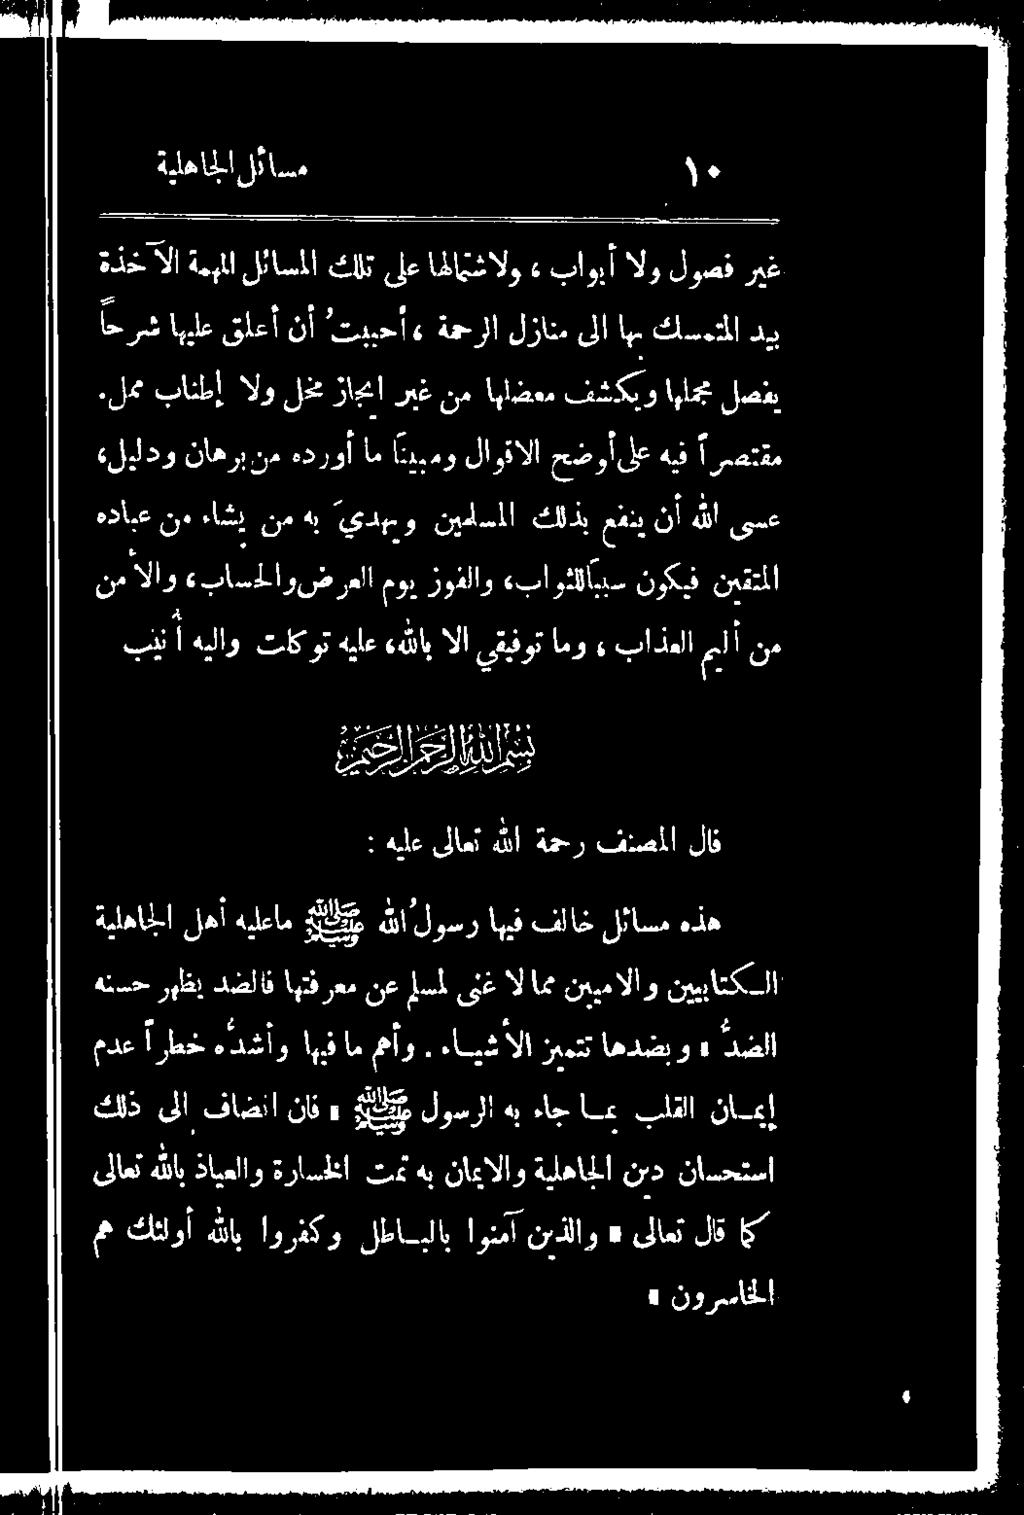 ١٠ مسائل الجاهلية
غير فصول ولا أبواب ، ولاشتمالها على تلك المسائل المهمة الآخذة
بيد المتمسك بها الى منازل الرحمة ، أحببتُ أن أعلق عليها شرحاً
يفصل مجملها ويكشف معضلها من غير ايجاز مخل ولا إطناب ممل.
مقتصراً فيه على أوضح الاقوال ومبيناً ما أورده من برهان ودليل،
عسى الله أن ينفع بذلك المسلمين ويهديَ به من يشاء من عباده
المتقين فيكون سبباً للثواب، والفوز يوم العرض والحساب، والأمن
من أليم العذاب ، وما توفيقي الا بالله، عليه توكلت واليه أنيب
بسم الله الرحمن الرحيم
قال المصنف رحمة الله تعالى عليه :
هذه مسائل خالف فيها رسولُ الله ﷺ ماعليه أهل الجاهلية
الكتابيين والاميين مما لا غنى لمسلم عن معرفتها فالضد يظهر حسنه
الضدُّ ∎ وبضدها تتميز الأشياء . وأهم ما فيها وأشدُّه خطراً عدم
إيمان القلب بما جاء به الرسول ﷺ ∎ فان انضاف الى ذلك
استحسان دين الجاهلية والايمان به تمت الخسارة والعياذ بالله تعالى
كما قال تعالى ∎ والذين آمنوا بالباطل وكفروا بالله أولئك هم
الخاسرون ∎